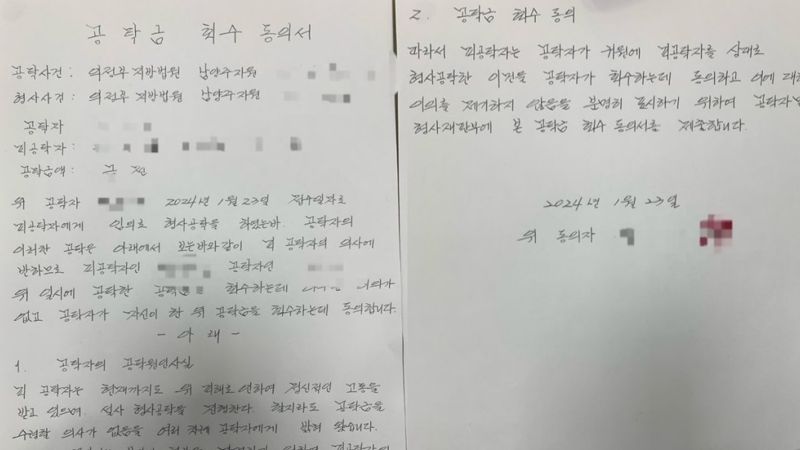 공탁금 회수 동의서
공탁사건 : 의정부지방법원 남양주지원
형사사건 : 의정부지방법원 남양주지원
공탁자
피공탁자 :
공탁금액 :
위 공탁자 2024년 1월 23일 접수일자로
피공탁자에게 임의로 형사공탁을 하였는바. 공탁자의
이러한 공탁은 아래에서 보는바와같이 피 공탁자의 의사에
반하므로 피공탁자인 공탁자인
위 일시에 공탁한 회수하는데
없고 공탁자가 자신이 한 위 공탁금을 회수하는데 동의합니다.
- 아 래 -
1. 공탁자의 공탁원인사실
피 공탁자는 현재까지도 위 피해로 인하여 정신적인 고통을
받고 있으며. 설사 형사공탁을 진행한다. 할지라도 공탁금을
수령할 의사가 없음을 여러 차례 공탁자에게 밝혀 왔습니다.
2. 공탁금 회수 동의
따라서 피공탁자는 공탁자가 귀원에 피공탁자를 상대로
형사공탁한 이건을 공탁자가 회수하는데 동의하고 이에 대한
이의를 제기하지 않음을 분명히 표시하기 위하여 공탁자
형사재판부에 본 공탁금 회수 동의서를 제출합니다.
2024년 1월 23일
위 동의자